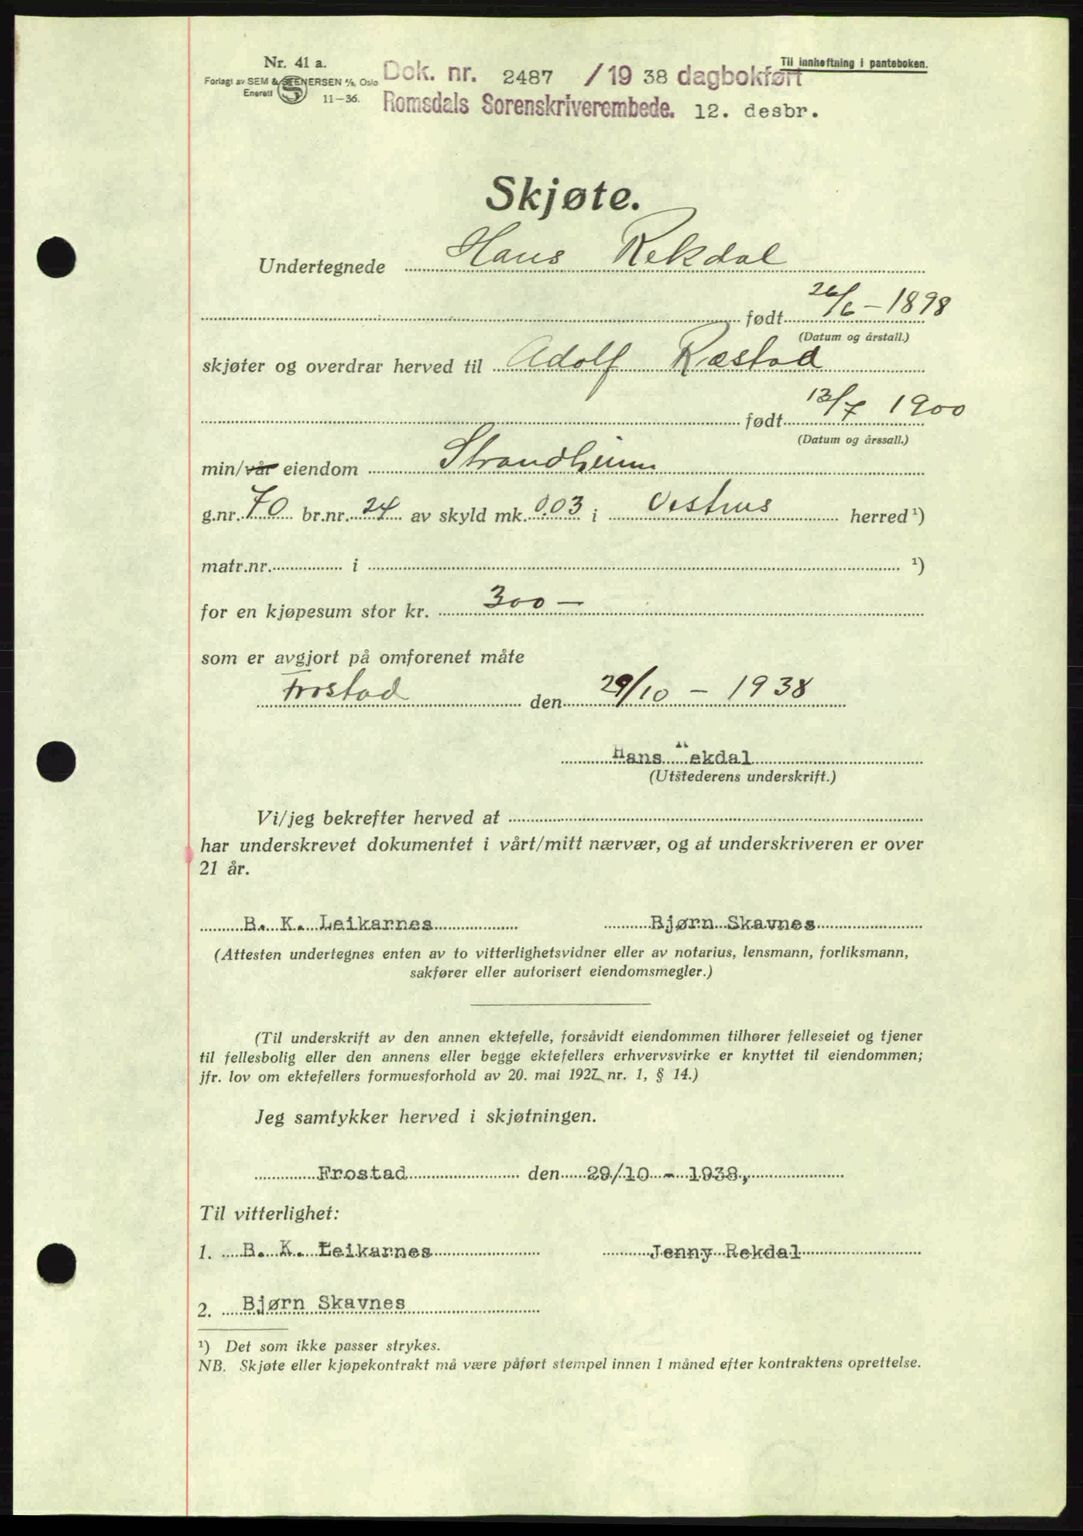 Nr. 41 a.
Til innheftning i panteboken.
Forlagt av SEM & STENERSEN A/S, Oslo
Enerett
11-36.
Dok. nr. 2487 /19 38 dagbokført
Romsdals Sorenskriverembede. 12. desbr.
Skjøte.
Undertegnede Hans Rekdal
født 26/6 - 1898
(Datum og årstall.)
skjøter og overdrar herved til Adolf Ræstad
født 13/7 1900
(Datum og årssall.)
min/vår eiendom Strandheim
g.nr. 70 br.nr. 24 av skyld mk. 0.03 i Vestnes herred ¹)
matr.nr. i ¹)
for en kjøpesum stor kr. 300 —
som er avgjort på omforenet måte
Frostad den 29/10 - 1938
Hans Rekdal
(Utstederens underskrift.)
Vi/jeg bekrefter herved at
har underskrevet dokumentet i vårt/mitt nærvær, og at underskriveren er over
21 år.
B. K. Leikarnes Bjørn Skavnes
(Attesten undertegnes enten av to vitterlighetsvidner eller av notarius, lensmann, forliksmann,
sakfører eller autorisert eiendomsmegler.)
(Til underskrift av den annen ektefelle, forsåvidt eiendommen tilhører felleseiet og tjener
til fellesbolig eller den annens eller begge ektefellers erhvervsvirke er knyttet til eiendommen;
jfr. lov om ektefellers formuesforhold av 20. mai 1927 nr. 1, § 14.)
Jeg samtykker herved i skjøtningen.
Frostad den 29/10 - 1938,
Til vitterlighet:
1. B. K. Leikarnes Jenny Rekdal
2. Bjørn Skavnes
¹) Det som ikke passer strykes.
NB. Skjøte eller kjøpekontrakt må være påført stempel innen 1 måned efter kontraktens oprettelse.